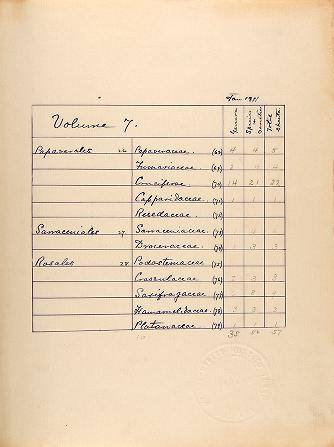 Jan 1911
Volume 7. Genera Species & varieties Total sheets
Papaverales 26 Papaveraceae. (67) 4 4 5
Fumariaceae (69) 4
Cruciferae (70) 14 21 22
Capparidaceae (71) 1 1 1
Resedaceae. (72)
Sarraceniales 27. Sarraceniaceae. (73) 1
Droseraceae. (74) 1 3 3
Rosales 28 Podostemaceae (75)
Crassulaceae (76) 2 3 3
Saxifragaceae (77) 8
Hamamelidaceae (78) 3 3 3
Platanaceae (79) 1
38 57